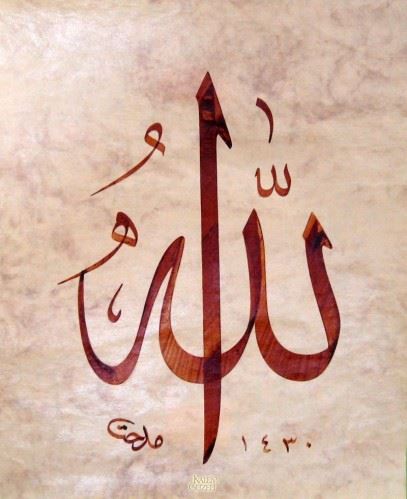 اللّٰهُ
١٤٣٠ مدحت
KALEM
GÜZELİ